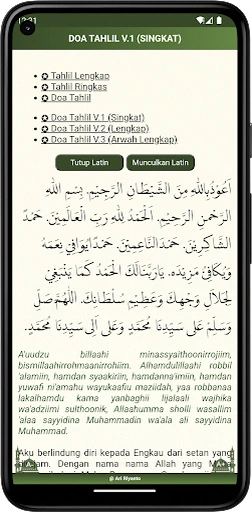 12:21
DOA TAHLIL V.1 (SINGKAT)
✪ Tahlil Lengkap
✪ Tahlil Ringkas
✪ Doa Tahlil
✪ Doa Tahlil V.1 (Singkat)
✪ Doa Tahlil V.2 (Lengkap)
✪ Doa Tahlil V.3 (Arwah Lengkap)
Tutup Latin Munculkan Latin
اَعُوْذُبِاللهِ مِنَ الشَّيْطَانِ الرَّجِيْمِ. بِسْمِ اللهِ
الرَّحْمنِ الرَّحِيْمِ. اَلْحَمْدُ لِلّهِ رَبِّ الْعَالَمِيْنَ. حَمْدً
الشَّاكِرِيْنَ. حَمْدَ النَّاعِمِيْنَ. حَمْدًايُوَافِيْ نِعَمَهُ
وَيُكَافِئُ مَزِيْدَه. يَارَبَّنَالَكَ الْحَمْدُ كَمَا يَنْبَغِيْ
لِجَلَالِ وَجْهِكَ وَعَظِيْمِ سُلْطَانِكَ. اَللّهُمَّ صَلِّ
وَسَلِّمْ عَلى سَيِّدِنَا مُحَمَّدٍ وَعَلى اَلِ سَيِّدِنَا مُحَمَّدٍ.
A'uudzu billaahi minassyaithoonirrojiim,
bismillaahirrohmaanirrohiim. Alhamdulillaahi robbil
'alamiin, hamdan syaakiriin, hamdanna'imiin, hamdan
yuwafi ni'amahu wayukaafiu maziidah, yaa robbanaa
lakalhamdu kama yanbaghii lijalaali wajhika
wa'adziimi sulthoonik, Allaahumma sholli wasallim
'alaa sayyidina Muhammadin wa'ala ali sayyidina
Muhammad.
Aku berlindung diri kepada Engkau dari setan yang
Dengan nama nama Allah yang
@ Ari Riyanto